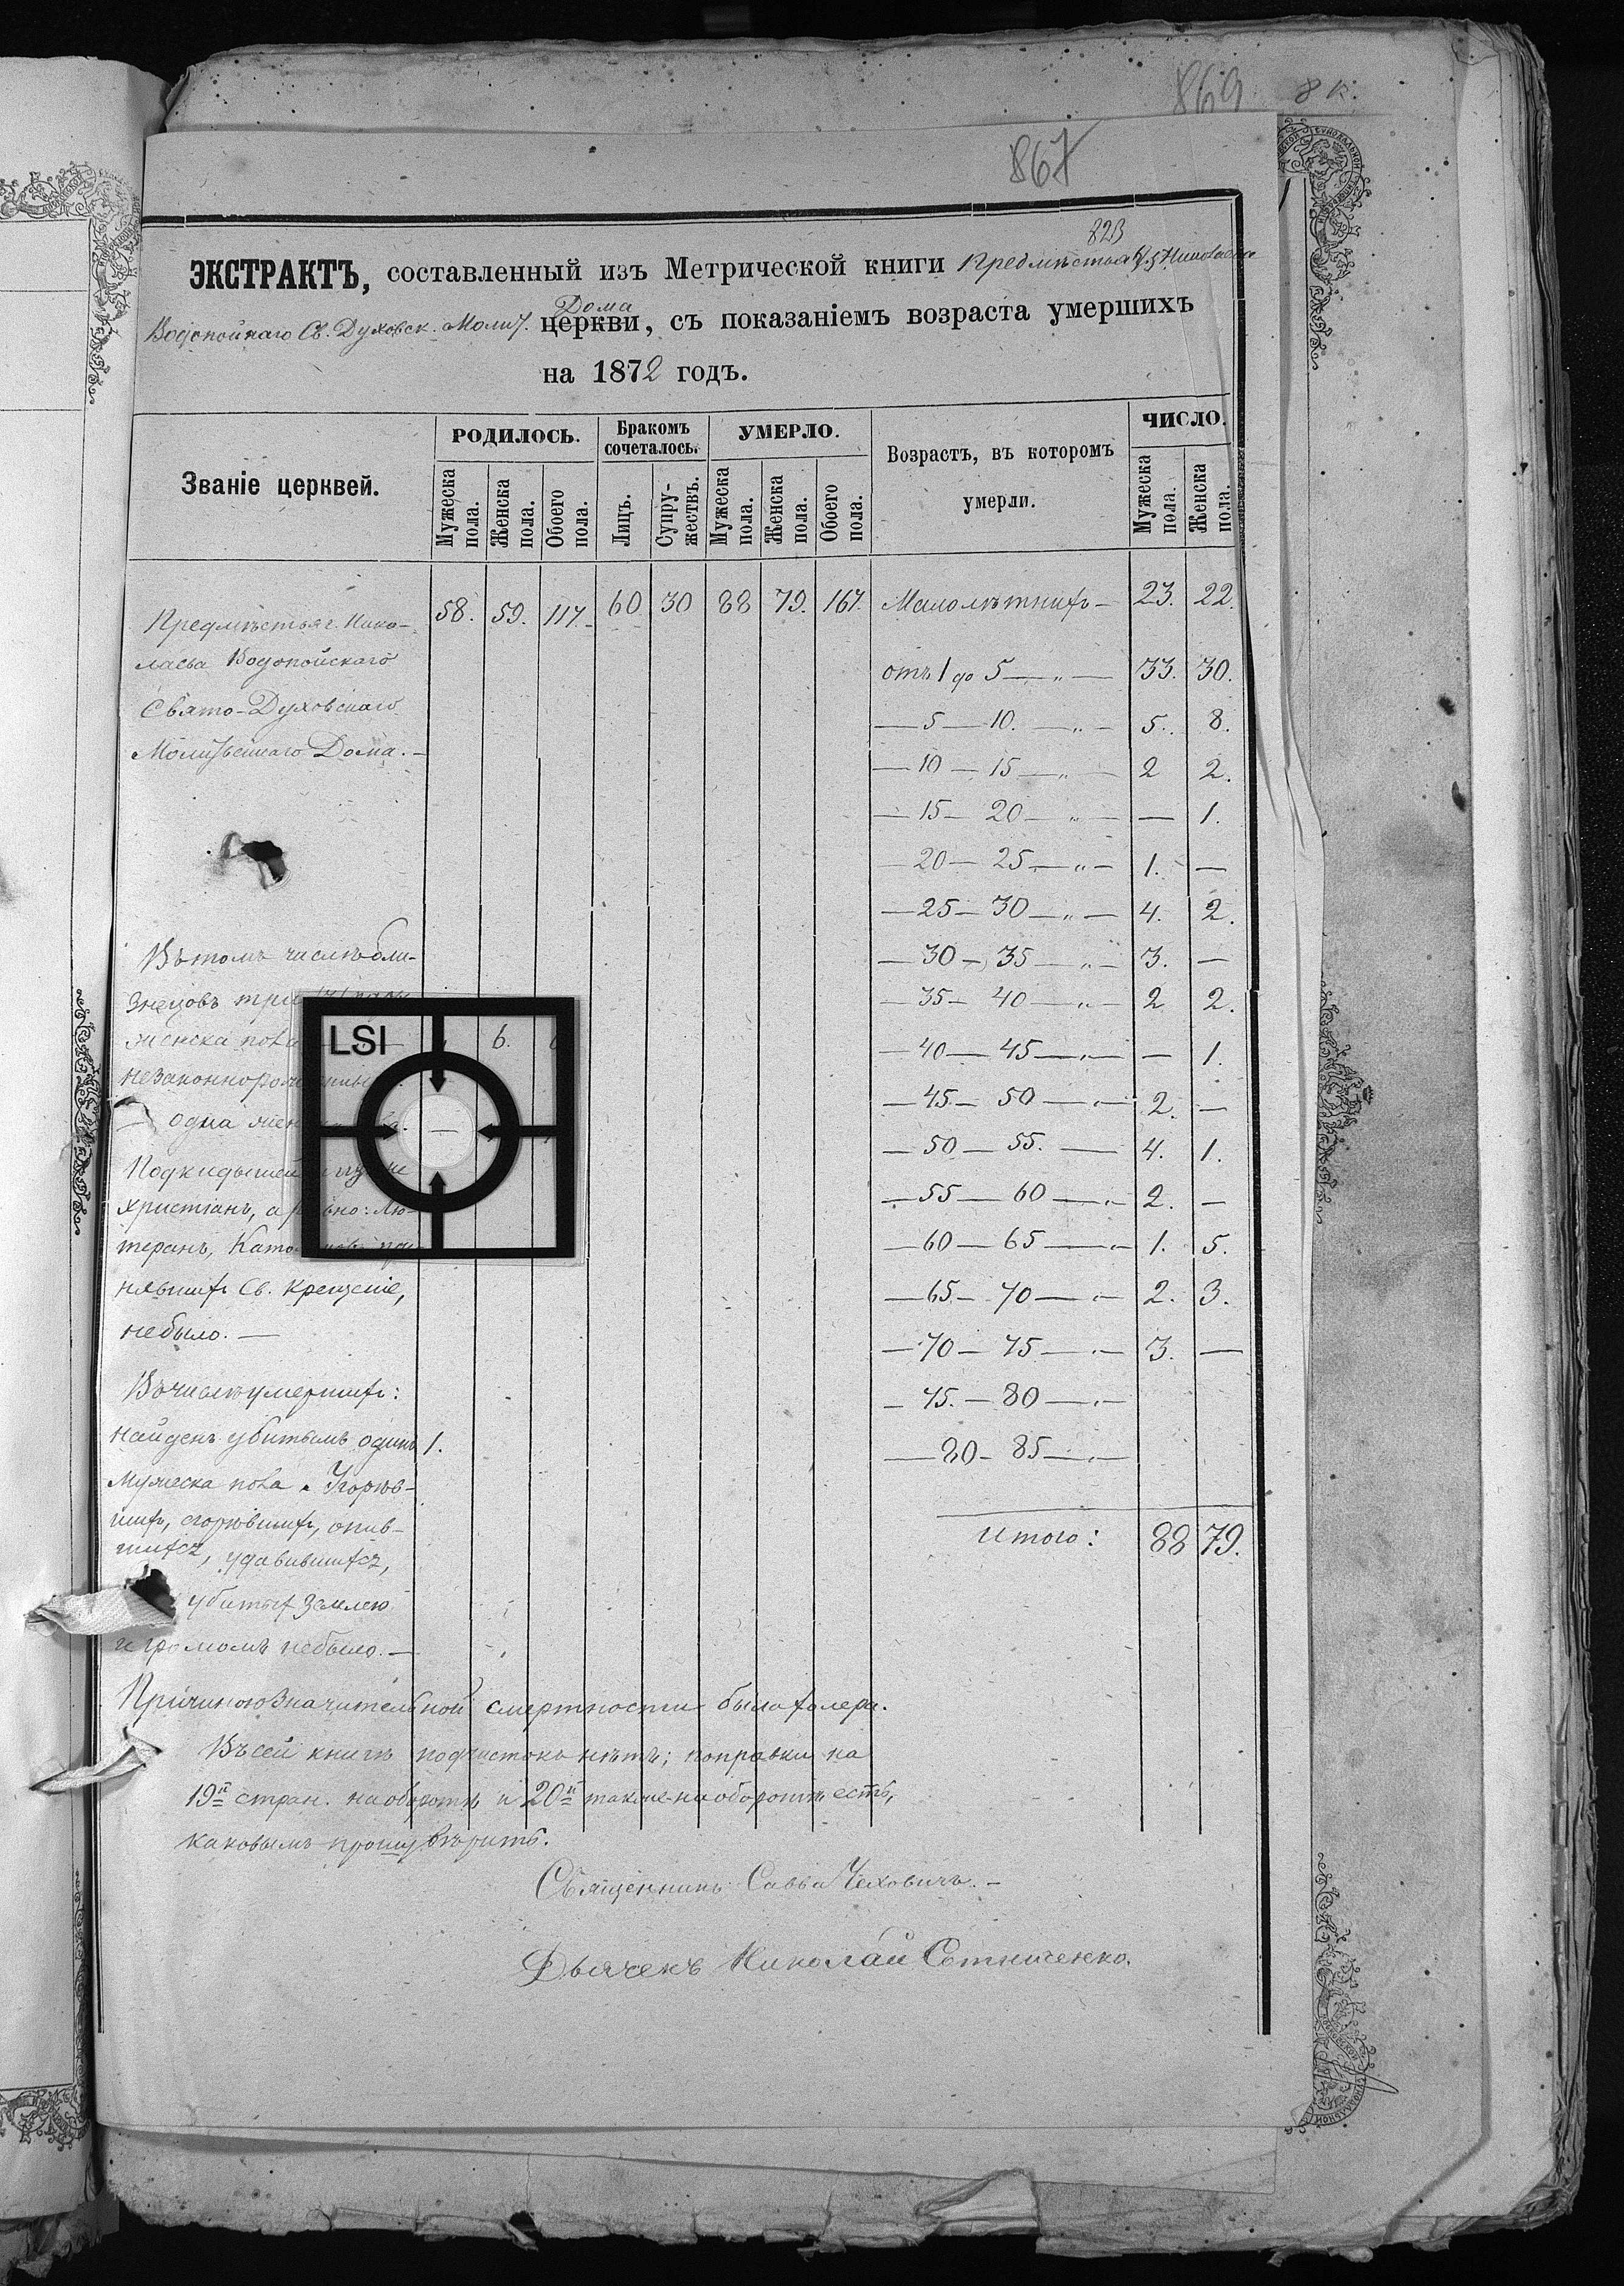 869 8 к.
867
823
ЭКСТРАКТЪ, составленный изъ Метрической книги Предмѣстья г. Николаева
Водопойнаго Св. Духовск. Молит. Дома церкви, съ показаніемъ возраста умершихъ
на 1872 годъ.
Званіе церквей.
РОДИЛОСЬ.
Бракомъ сочеталось.
УМЕРЛО.
Возрастъ, въ которомъ умерли.
ЧИСЛО.
Мужеска пола.
Женска пола.
Обоего пола.
Лицъ.
Супружествъ.
Мужеска пола.
Женска пола.
Обоего пола.
Мужеска пола.
Женска пола.
Предмѣстья г. Нико-
лаева Водопойскаго
Свято-Духовскаго
Молитвеннаго Дома. —
58. 59. 117. 60 30 88 79. 167.
Малолѣтнихъ — 23. 22.
отъ 1 до 5 — „ — 33. 30.
— 5 — 10. — „ — 5. 8.
— 10 — 15 — „ — 2 2.
— 15 — 20 — „ — — 1.
— 20 — 25 — „ — 1. —
— 25 — 30 — „ — 4. 2.
— 30 — 35 — „ — 3. —
— 35 — 40 — „ — 2 2.
— 40 — 45 — „ — — 1.
— 45 — 50 — „ — 2. —
— 50 — 55. — 4. 1.
— 55 — 60 — „ 2. —
— 60 — 65 — „ 1. 5.
— 65 — 70 — „ 2. 3.
— 70 — 75 — „ — 3. —
— 75. — 80 — „ —
— 80 — 85 — „ —
Итого: 88 79.
Въ томъ числѣ бли-
знецовъ три
женска пола 6.
незаконнорожденныхъ
— одна
Подкидышей
христіанъ, а равно: Лю-
теранъ, при-
нявшихъ Св. Крещеніе,
небыло. —
LSI
Въ числѣ умершихъ:
найденъ убитымъ одинъ 1.
мужеска пола. Угорѣв-
шихъ, сгорѣвшихъ, опив-
шихся, удавившихся,
убитых землею
и громомъ небыло. —
Причиною значительной смертности была холера.
Въ сей книгѣ подчистокъ нѣтъ; поправки на
19й стран. на оборотѣ и 20й также на оборотѣ есть,
каковымъ прошу вѣрить.
Священникъ Савва Чеховичъ. —
Дьячекъ Николай Сотниченко.